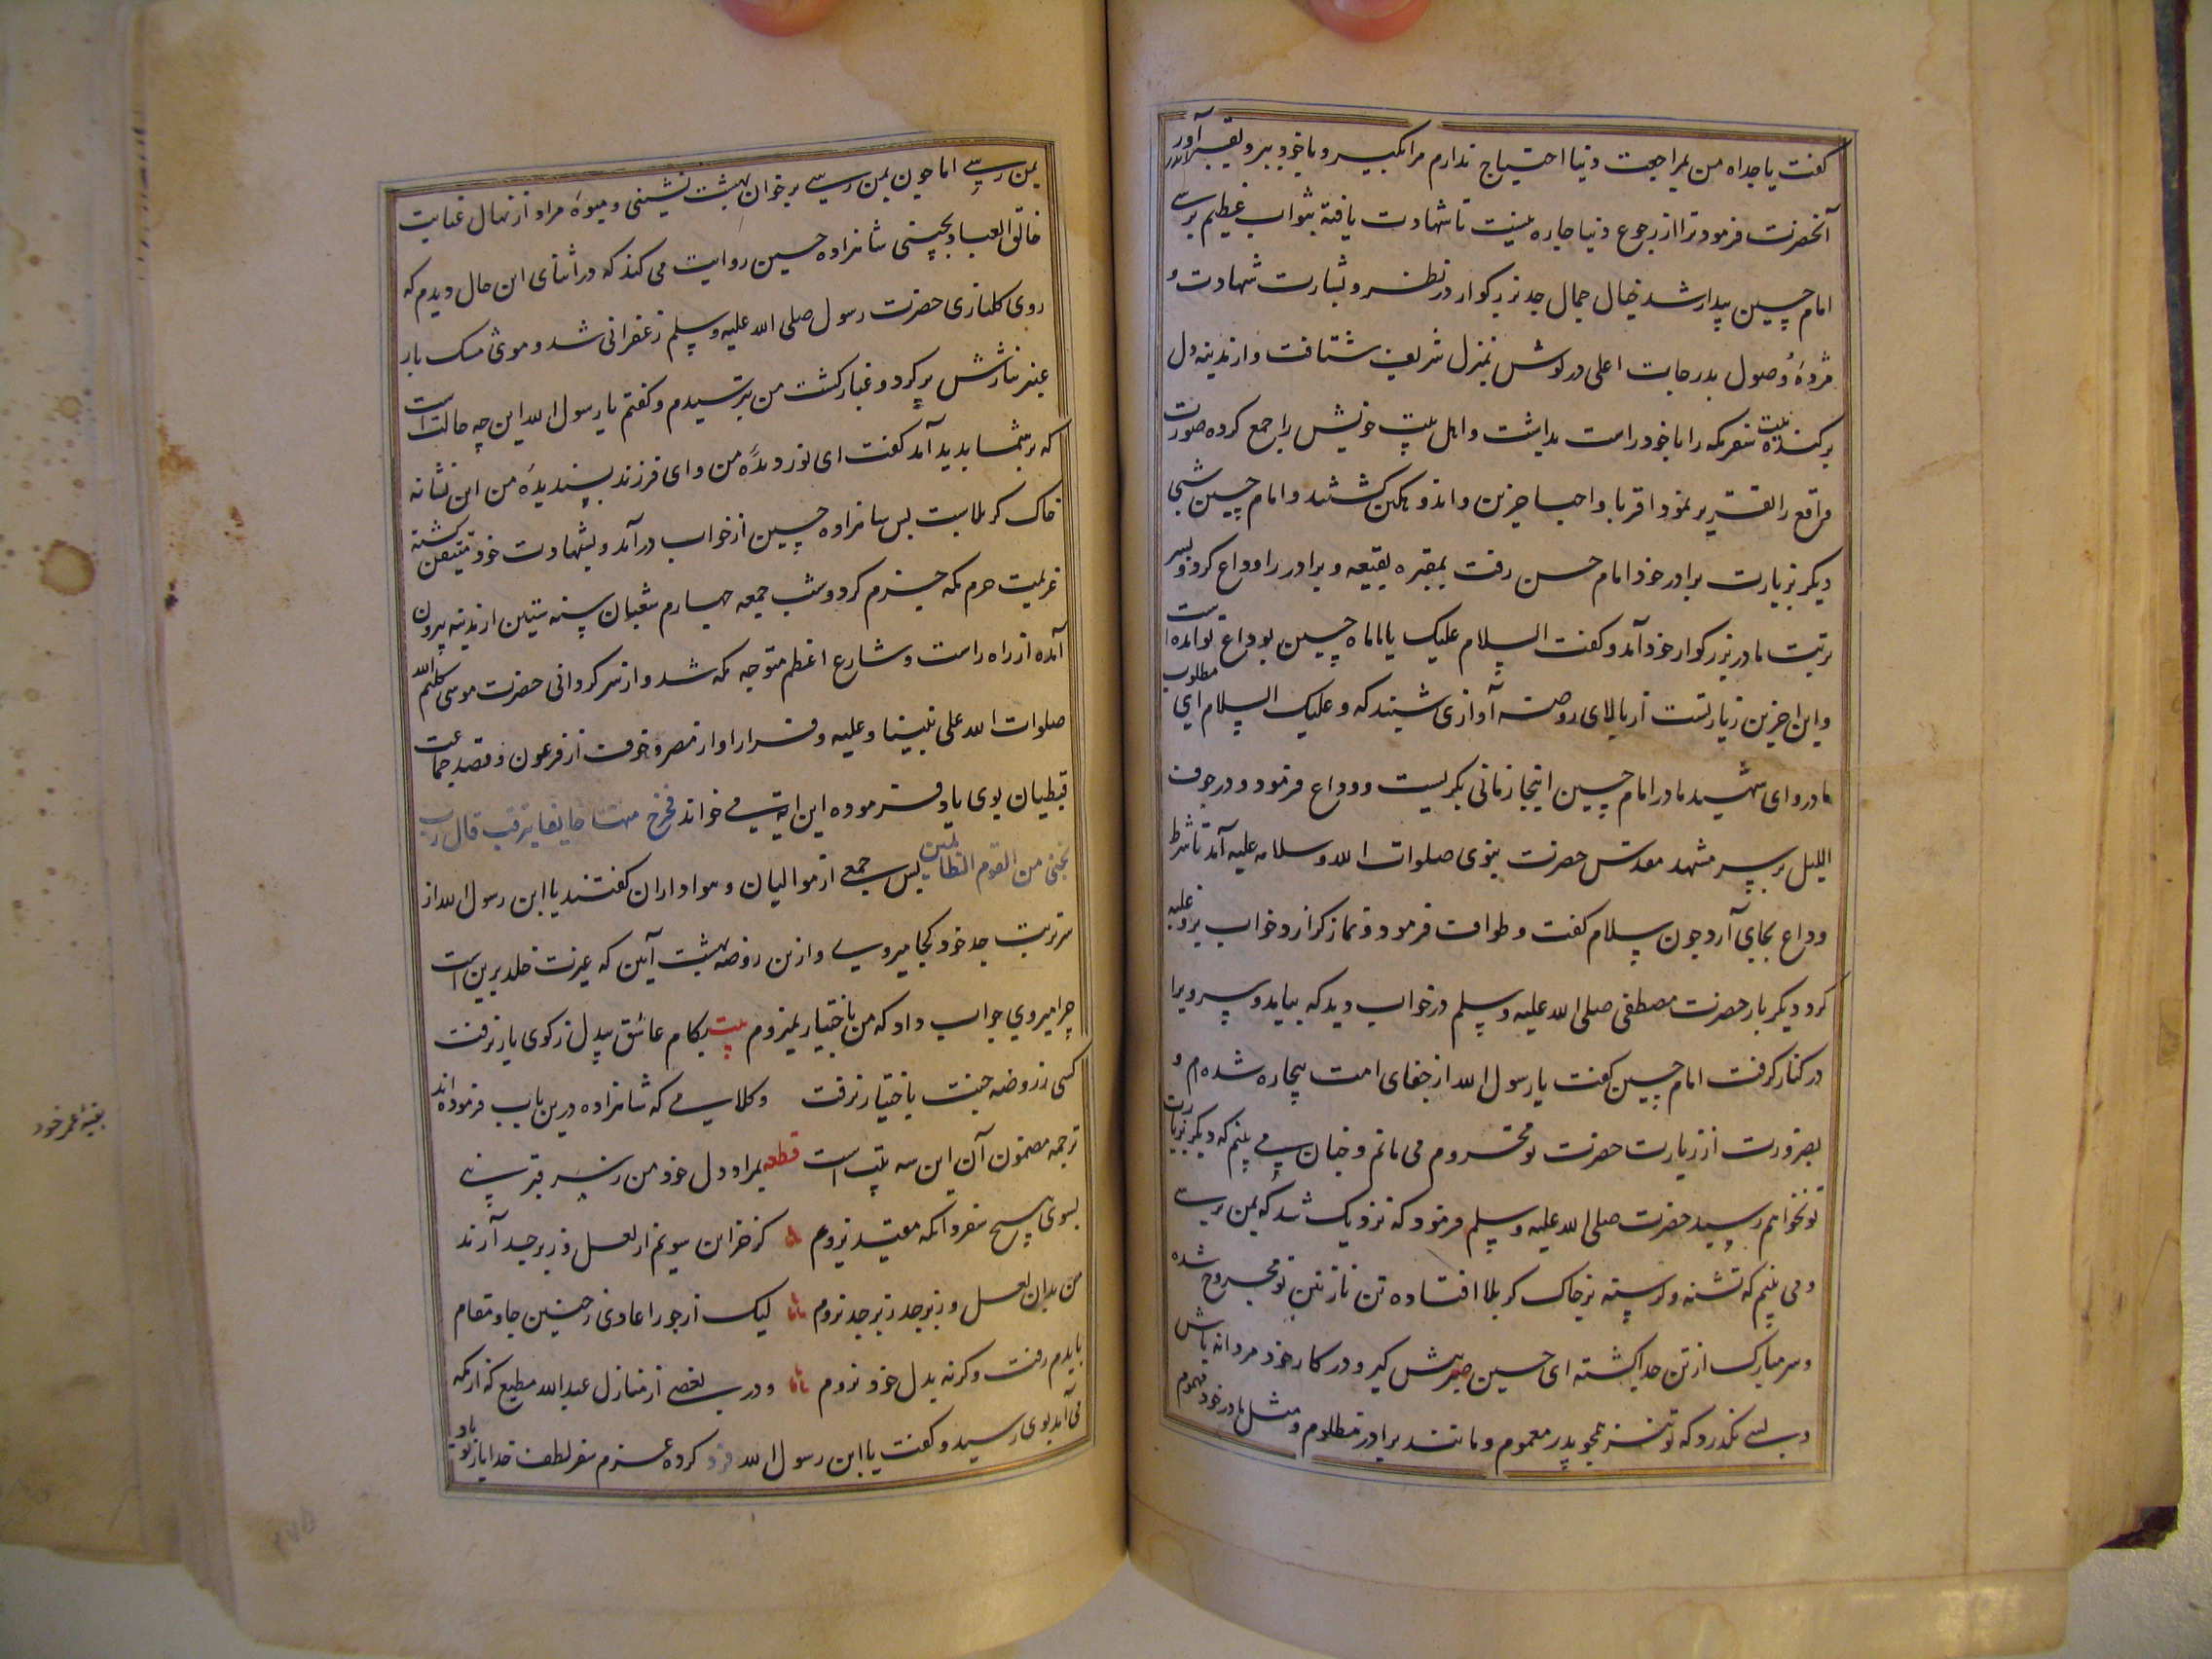 گفت یا جداه من بمراجعت دنیا احتیاج ندارم مرا بگیر و با خود ببر و بقبر اندر آور
آنحضرت فرمود ترا از رجوع دنیا چاره نیست تا شهادت یافته بثواب عظیم برسی
امام حسین بیدار شد خیال جمال جد بزرگوار در نظر و بشارت شهادت و
مژدهٔ وصول بدرجات اعلی در گوش بمنزل شریف شتافت و از مدینه دل
برکنده نیت سفر مکه را با خود راست بداشت و اهل بیت خویش را جمع کرده صورت
واقع را تقریر نمود اقربا و احبا حزین و اندوهگین گشتند و امام حسین شبی
دیگر بزیارت برادر خود امام حسن رفت بمقبره بقیعه و برادر را وداع کرد و بسر
تربت مادر بزرگوار خود آمد و گفت السلام علیک یا اماه حسین بوداع تو آمده است
و این آخرین زیارتست از بالای روضه آوازی شنید که و علیک السلام ای مظلوم
مادر و ای شهید مادر امام حسین اینجا زمانی بگریست و وداع فرمود و در جوف
اللیل بر سر مشهد مقدس حضرت نبوی صلوات الله و سلامه علیه آمد تا شرط
وداع بجای آرد چون سلام گفت و طواف فرمود و نماز گزارد خواب برو غلبه
کرد دیگر بار حضرت مصطفی صلی الله علیه وسلم در خواب دید که بیاید و سر ویرا
در کنار گرفت امام حسین گفت یا رسول الله از جفای امت بیچاره شده ام و
بضرورت از زیارت حضرت تو محروم می مانم و چنان می بینم که دیگر بزیارت
تو نخواهم رسید حضرت صلی الله علیه وسلم فرمود که نزدیک شد که بمن برسی
و می بینم که تشنه و گرسنه بر خاک کربلا افتاده تن نازنین تو مجروح شده
و سر مبارک از تن جدا گشته ای حسین صبر پیش گیر و در کار خود مردانه باش
و بسی نگذرد که تو نیز همچو پدر مغموم و مانند برادر مظلوم و مثل مادر خود مهموم
بمن رسی اما چون بمن رسی بر خوان بهشت نشینی و میوهٔ مراد از نهال عنایت
خالق العباد بچینی شاهزاده حسین روایت می کند که در اثنای این حال دیدم که
روی گلناری حضرت رسول صلی الله علیه وسلم زعفرانی شد و موی مشک بار
عنبر نثارش پر گرد و غبار گشت من بترسیدم و گفتم یا رسول الله این چه حالت است
که بر شما پدید آمد گفت ای نور دیدهٔ من و ای فرزند پسندیدهٔ من این نشانه
خاک کربلاست پس شاهزاده حسین از خواب درآمد و بشهادت خود متیقن گشته
عزیمت حرم مکه جزم کرد و شب جمعه چهارم شعبان سنه ستین از مدینه بیرون
آمده از راه راست و شارع اعظم متوجه مکه شد و از سرگردانی حضرت موسی کلیم الله
صلوات الله علی نبینا و علیه و فرار او از مصر و خوف از فرعون و قصد جماعت
قبطیان بوی یاد فرموده این آیت می خواند فخرج منها خایفا یترقب قال رب
نجنی من القوم الظالمین پس جمعی از موالیان و هواداران گفتند یا ابن رسول الله از
سر تربت جد خود کجا میروی و ازین روضه بهشت آیین که غیرت خلد برین است
چرا میروی جواب داد که من باختیار نمیروم بیت بکام عاشق بیدل ز کوی یار نرفت
کسی ز روضه جنت باختیار نرفت و کلامی که شاهزاده درین باب فرموده اند
ترجمه مضمون آن این سه بیت است قطعه بمراد دل خود من ز سر قبر نبی
بسوی هیچ سفر و آنکه مقید نروم گر خزاین سویم از لعل و زبرجد آرند
من بدان لعل و زبرجد زبرجد نروم لیک از جور اعادی ز چنین جا و مقام
بایدم رفت وگرنه بدل خود نروم و در بعضی از منازل عبدالله مطیع که از مکه
می آمد بوی رسید و گفت یا ابن رسول الله فرد کرده عزم سفر لطف خدا یار تو باد
بقیه عمر خود